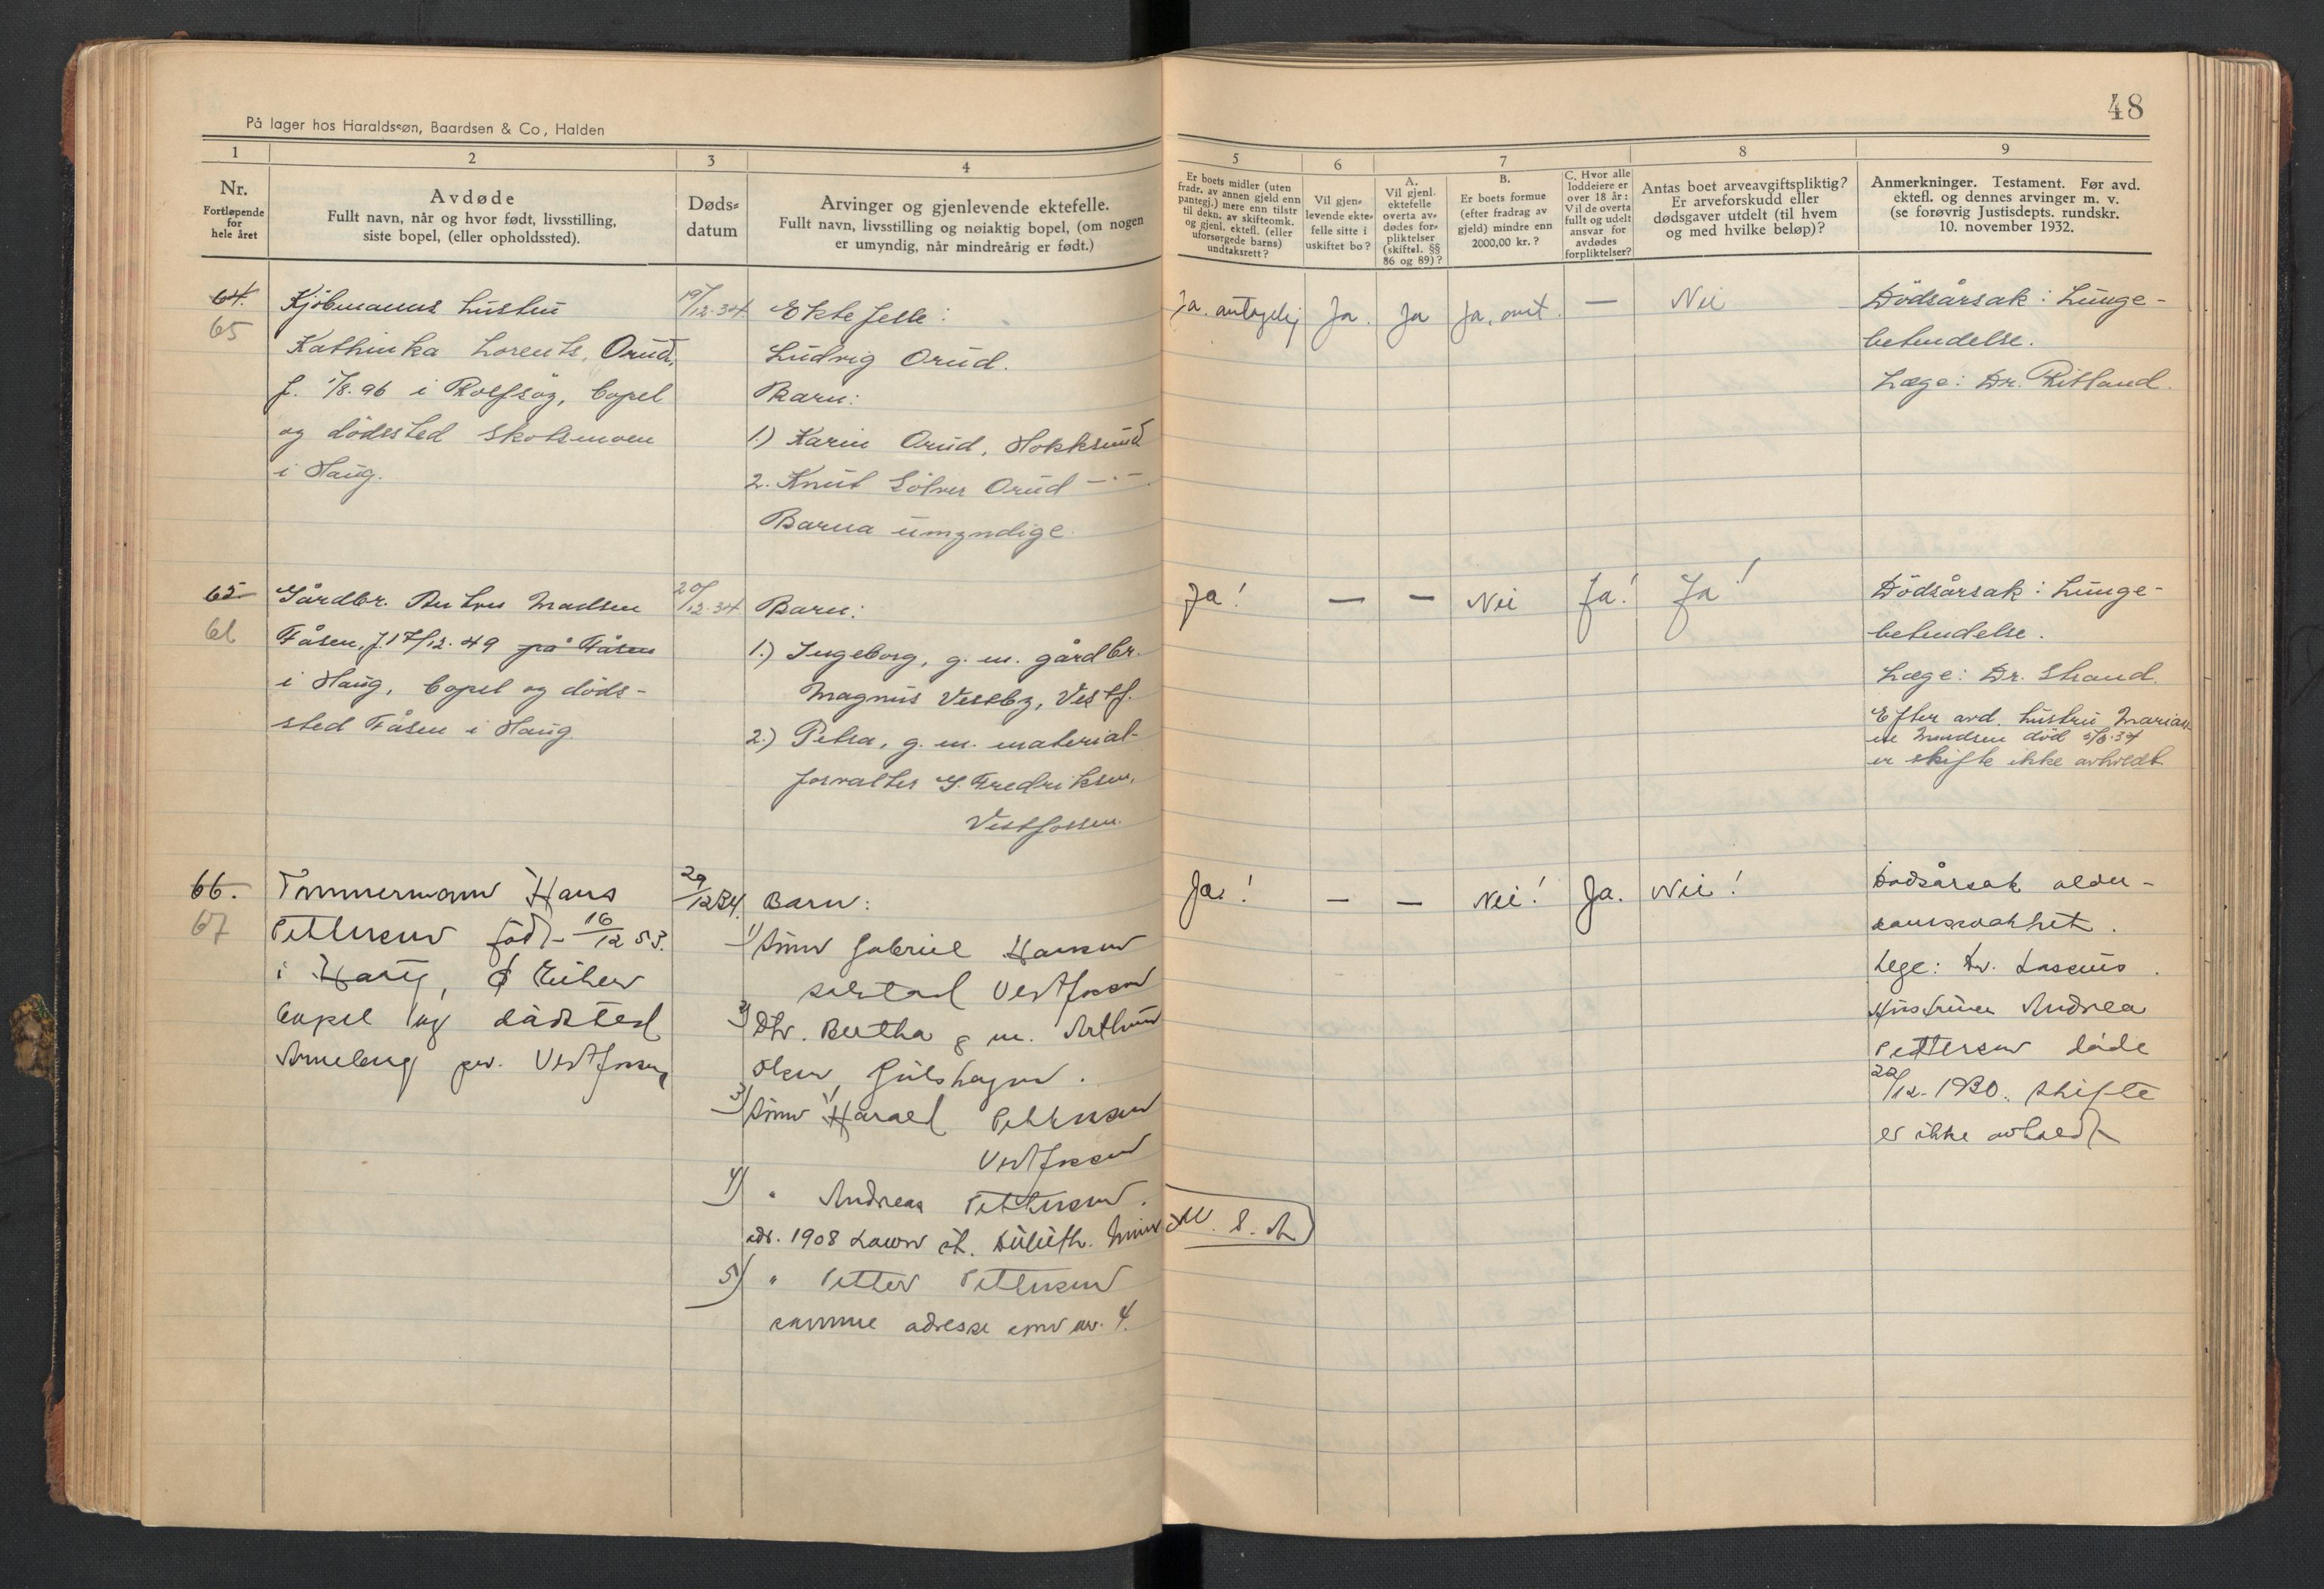 På lager hos Haraldssøn, Baardsen & Co, Halden
48
1
2
3
4
5
6
7
8
9
Nr.
Fortløpende
for
hele året
Avdøde
Fullt navn, når og hvor født, livsstilling,
siste bopel, (eller opholdssted).
Døds-
datum
Arvinger og gjenlevende ektefelle.
Fullt navn, livsstilling og nøiaktig bopel, (om nogen
er umyndig, når mindreårig er født.)
Er boets midler (uten
fradr. av annen gjeld enn
pantegj.) mere enn tilstr
til dekn. av skifteomk.
og gjenl. ektefl. (eller
uforsørgede barns)
undtaksrett?
Vil gjen-
levende ekte-
felle sitte i
uskiftet bo?
A.
Vil gjenl.
ektefelle
overta av-
dødes for-
pliktelser
(skiftel. §§
86 og 89)?
B.
Er boets formue
(efter fradrag av
gjeld) mindre enn
2000,00 kr.?
C. Hvor alle
loddeiere er
over 18 år:
Vil de overta
fullt og udelt
ansvar for
avdødes
forpliktelser?
Antas boet arveavgiftspliktig?
Er arveforskudd eller
dødsgaver utdelt (til hvem
og med hvilke beløp)?
Anmerkninger. Testament. Før avd.
ektefl. og dennes arvinger m. v.
(se forøvrig Justisdepts. rundskr.
10. november 1932.
64.
65
Kjøbmanns hustru
Kathinka Lorents. Orud,
f. 1/8.96 i Rolfsøy, bopel
og dødssted Skotsmoen
i Haug.
19/12.34
Ektefelle:
Ludvig Orud.
Barn:
1.) Karin Orud, Hokksund
2. Knut Sølver Orud -"-
Barna umyndige.
Ja. antagelig
Ja.
Ja
Ja, ant.
—
Nei
Dödsårsak: Lunge-
betendelse.
Læge: Dr. Ritland.
65
66
Gårdbr. Anton Madsen
Fåsen, f. 17/12.49 på Fåsen
i Haug, bopel og döds-
sted Fåsen i Haug
20/12.34
Barn:
1.) Ingeborg, g. m. gårdbr.
Magnus Vestby, Vestf.
2.) Petra, g. m. material-
forvalter G. Fredriksen,
Vestfossen.
Ja!
—
—
Nei
Ja!
Ja!
Dödsårsak: Lunge-
betendelse.
Læge: Dr. Strand.
Efter avd. hustru Marian-
ne Madsen död 5/6.34
er skifte ikke avholdt.
66.
67
Tømmermann Hans
Pettersen født 16/12 53.
i Haug, Ø Eiker
bopel og dødsted
Anneberg pr. Vestfossen
29/12 34.
Barn:
1) Sønn Gabriel Hansen
Solstad Vestfossen
2) Dtr. Bertha g m. Arthur
Olsen, Gulskogen.
3) Sønn Harald Pettersen
Vestfossen
4) " Andreas Pettersen.
adr. 1908 Lawn st. Duluth. Minn U. S. A
5) " Petter Pettersen
samme adresse som nr. 4.
Ja!
—
—
Nei!
Ja.
Nei!
Dødsårsak alder-
domssvakhet.
Lege: Dr. Lassens.
Hustruen Andrea
Pettersen døde
22/12-1930. skifte
er ikke avholdt